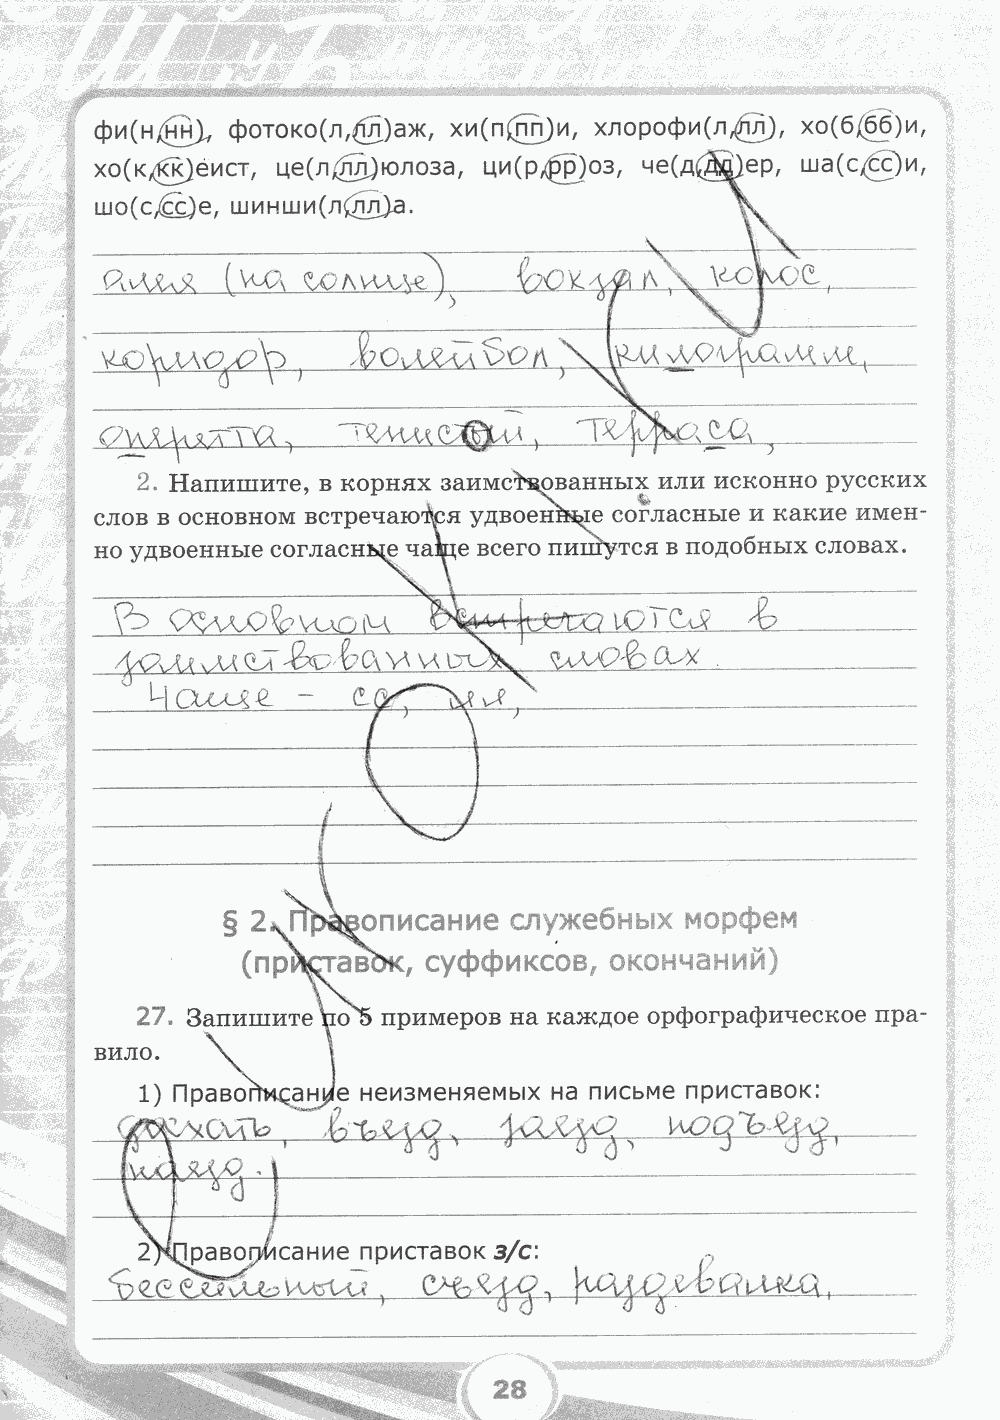 фи(н,нн), фотоко(л,лл)аж, хи(п,пп)и, хлорофи(л,лл), хо(б,бб)и,
хо(к,кк)еист, це(л,лл)юлоза, ци(р,рр)оз, че(д,дд)ер, ша(с,сс)и,
шо(с,сс)е, шинши(л,лл)а.
алея (на солнце), вокзал, колос,
коридор, волейбол, килограмм,
оперетта, тенистый, терраса,
2. Напишите, в корнях заимствованных или исконно русских
слов в основном встречаются удвоенные согласные и какие имен-
но удвоенные согласные чаще всего пишутся в подобных словах.
В основном встречаются в
заимствованных словах.
Чаще – сс, лл,
§ 2. Правописание служебных морфем
(приставок, суффиксов, окончаний)
27. Запишите по 5 примеров на каждое орфографическое пра-
вило.
1) Правописание неизменяемых на письме приставок:
доехать, въезд, заезд, подъезд,
наезд.
2) Правописание приставок з/с:
бессильный, съезд, раздевалка,
28